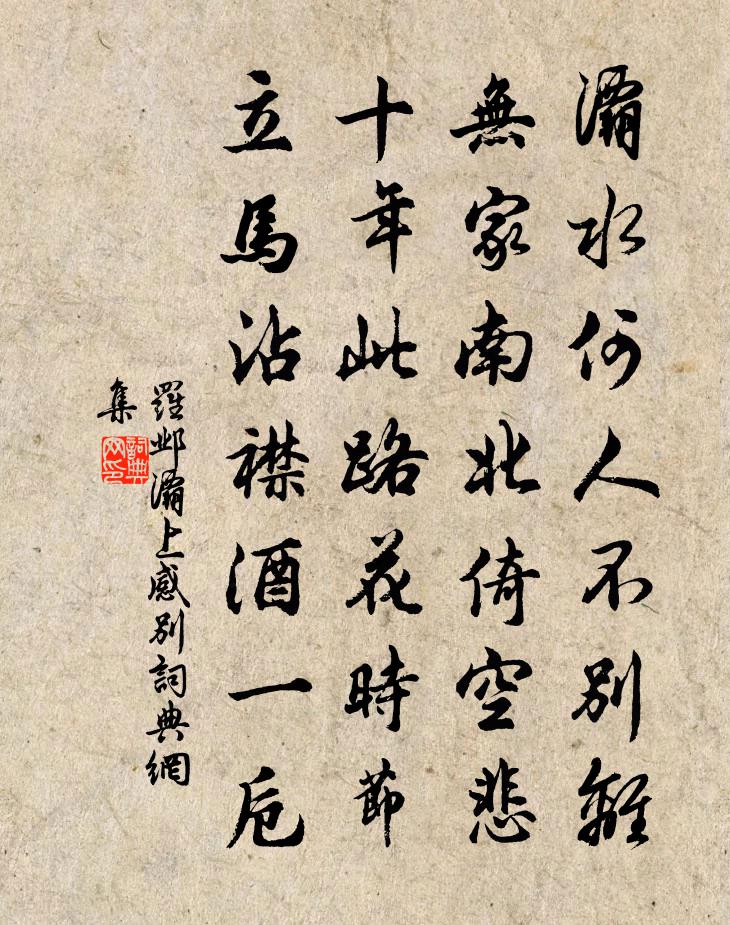 灞水何人不別離
無家南北倚空悲
十年此路花時節
立馬沾襟酒一卮
羅鄴灞上感別詞典網
集
詞典
网印